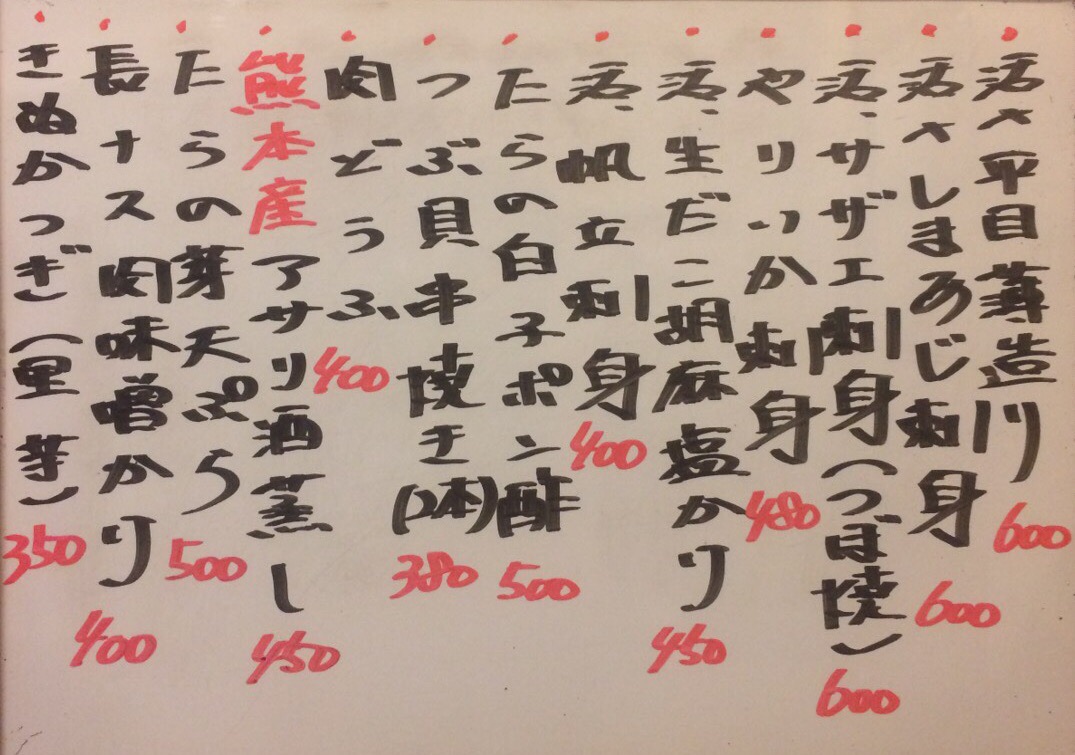 活〆平目薄造り 600
活〆しまあじ刺身 600
活、サザエ刺身(つぼ焼) 600
やりいか刺身 480
活、生だこ胡麻塩かり 450
活、帆立刺身 400
たらの白子ポン酢 500
つぶ貝串焼き(2本) 380
肉どうふ 400
熊本産アサリ酒蒸し 450
たらの芽天ぷら 500
長ナス肉味噌かり 400
きぬかつぎ(里芋) 350